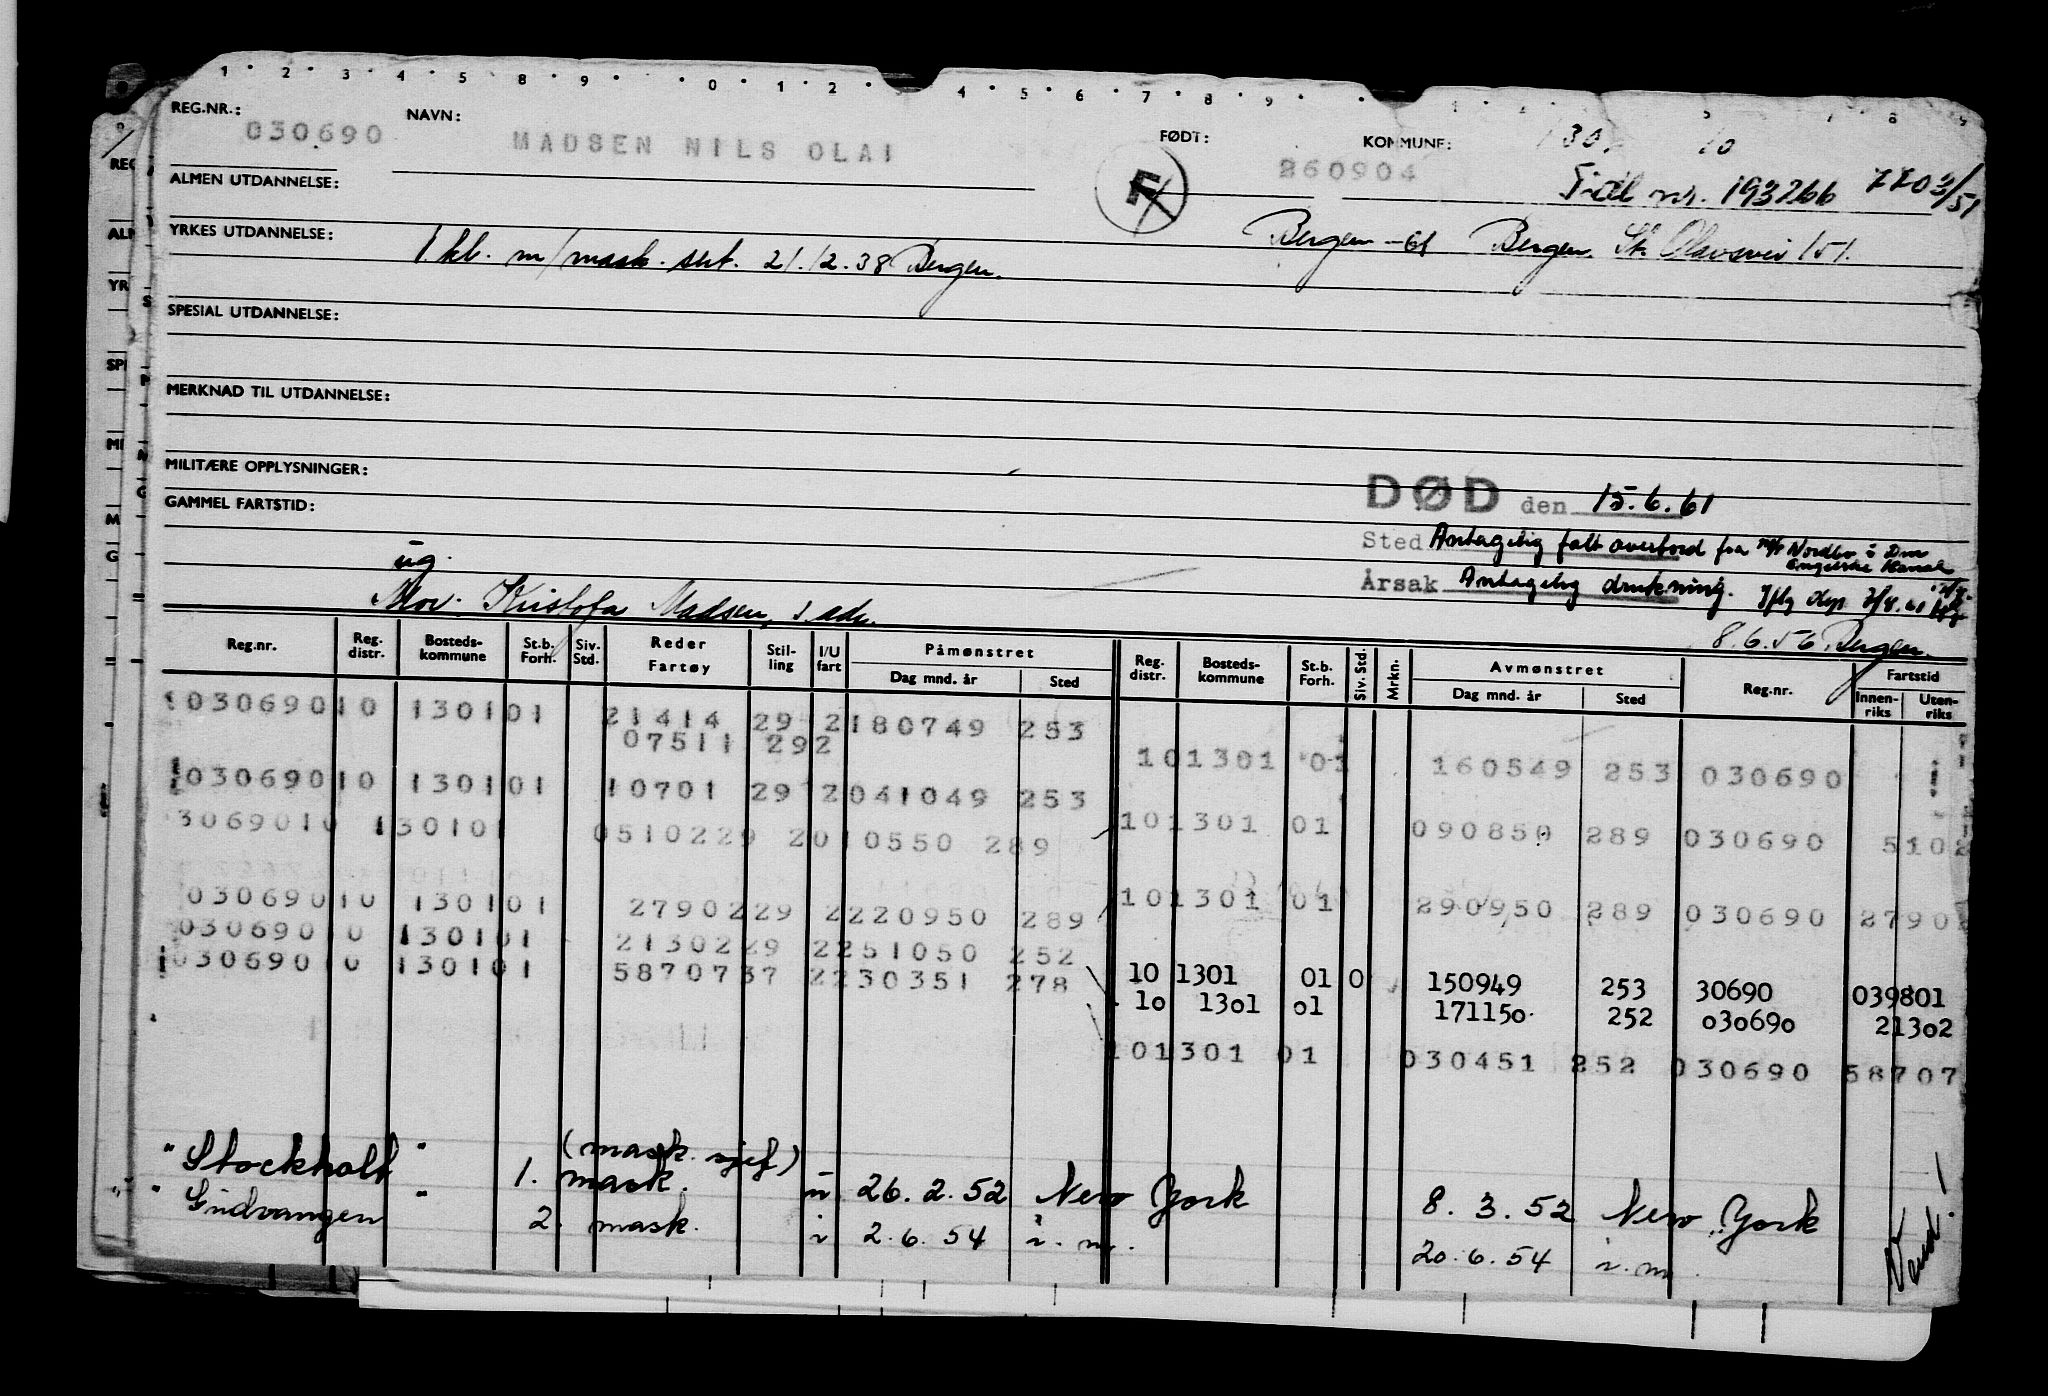 1 2 3 4 5 8 9 0 1 2 4 5 6 7 8 9
REG.NR.: 030690 NAVN: MADSEN NILS OLAI FØDT: 260904 KOMMUNE:
F
Fidl nr. 193266 7703/51
ALMEN UTDANNELSE:
Bergen -61 Bergen, St. Olavsvei 151.
YRKES UTDANNELSE: 1 kl. m/mask. sert. 21.12.38 Bergen.
SPESIAL UTDANNELSE:
MERKNAD TIL UTDANNELSE:
MILITÆRE OPPLYSNINGER:
GAMMEL FARTSTID:
DØD den 15.6.61
Sted Antagelig falt overbord fra m/t Nordbo i Den Engelske Kanal
Årsak Antagelig drukning.
ug.
Mor. Kristofa Madsen, s. adr.
8.6.56. Bergen.
Reg.nr. Reg. distr. Bosteds-kommune St.b. Forh. Siv. Std. Reder Fartøy Stil-ling I/U fart Påmønstret Dag mnd. år Sted Reg. distr. Bosteds-kommune St.b. Forh. Siv. Std. Mrkn. Avmønstret Dag mnd. år Sted Reg.nr. Fartstid Innen-riks Uten-riks
030690 10 1301 01 21414 29 2 180749 253
07511 292
101301 03 160549 253 030690
030690 10 1301 01 10701 29 2 041049 253
3069010 130101 0510229 2010550 289
101301 01 090850 289 030690 5102
030690 10 1301 01 2790229 2220950 289
101301 01 290950 289 030690 27902
030690 10 1301 01 2130229 2251050 252
030690 10 1301 01 5870737 2230351 278
10 1301 01 0 150949 253 30690 039801
10 1301 01 171150 252 030690 21302
101301 01 030451 252 030690 58707
"Stockholt" 1. mask. (mask. sjef) u 26.2.52 New York 8.3.52 New York
"Gudvangen" 2. mask. i 2.6.54 i.m. 20.6.54 i.m.
Vend!